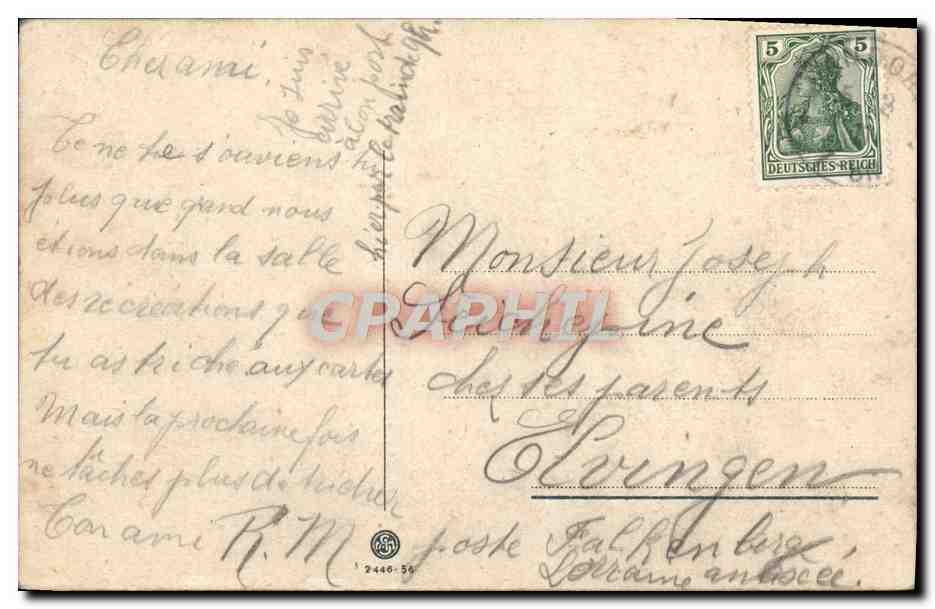 Cher ami.
Je suis
arrivé
à bon port
hier par le train de 9h.
Te ne te souviens tu
plus que qand nous
étions dans la salle
des récréations que
tu as triché aux cartes
Mais la prochaine fois
ne tâches plus de tricher
Ton ami R. M
5 5
DEUTSCHES REICH
Monsieur Joseph
chez ses parents
Elvingen
poste Falkenberg
Lorraine annexée.
2446-56
CPAPHIL